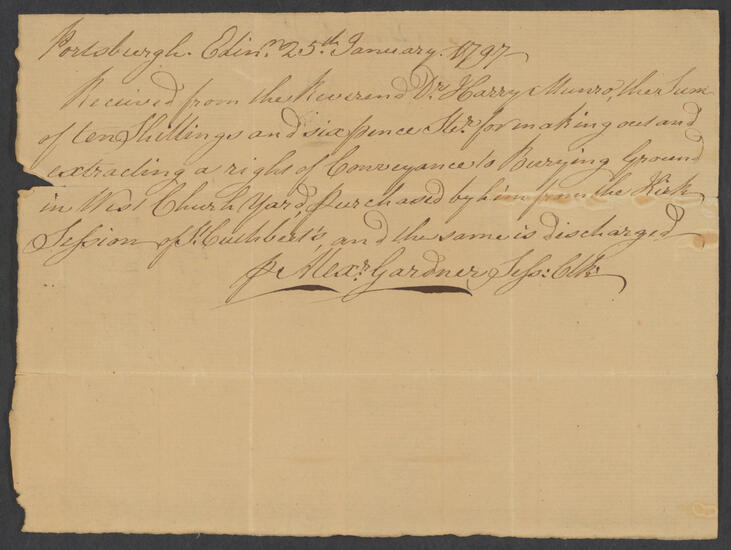 Portsburgh. Edinr. 25th. January. 1797
Received from the Reverend Dr. Harry Munro, the Sum
of ten Shillings and six pence Ster. for making out and
extracting a right of Conveyance to Burying Ground
in West Church Yard, purchased by him from the Kirk
Session of St. Cuthbert's, and the same is discharged
p Alexr. Gardner Sess: Clk: